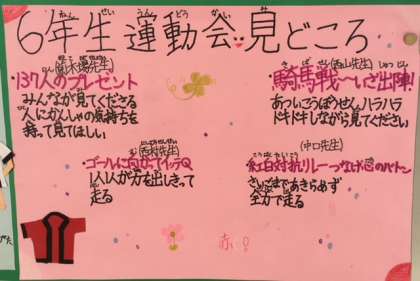 6年生運動会見どころ
ねん せい うん どう かい み
137人のプレゼント
みんなが見てくださる
人にかんしゃの気持ちを
持って見てほしい
(西山先生)
騎馬戦〜いざ出陣!
あついこうぼうせんハラハラ
ドキドキしながら見てください
(西村先生)
ゴールに向かってイッテQ
1人1人が力を出しきって
走る
(中口先生)
紅白対抗リレーつなげ!恋のバトン
さいごまであきらめず
全力で走る
赤!